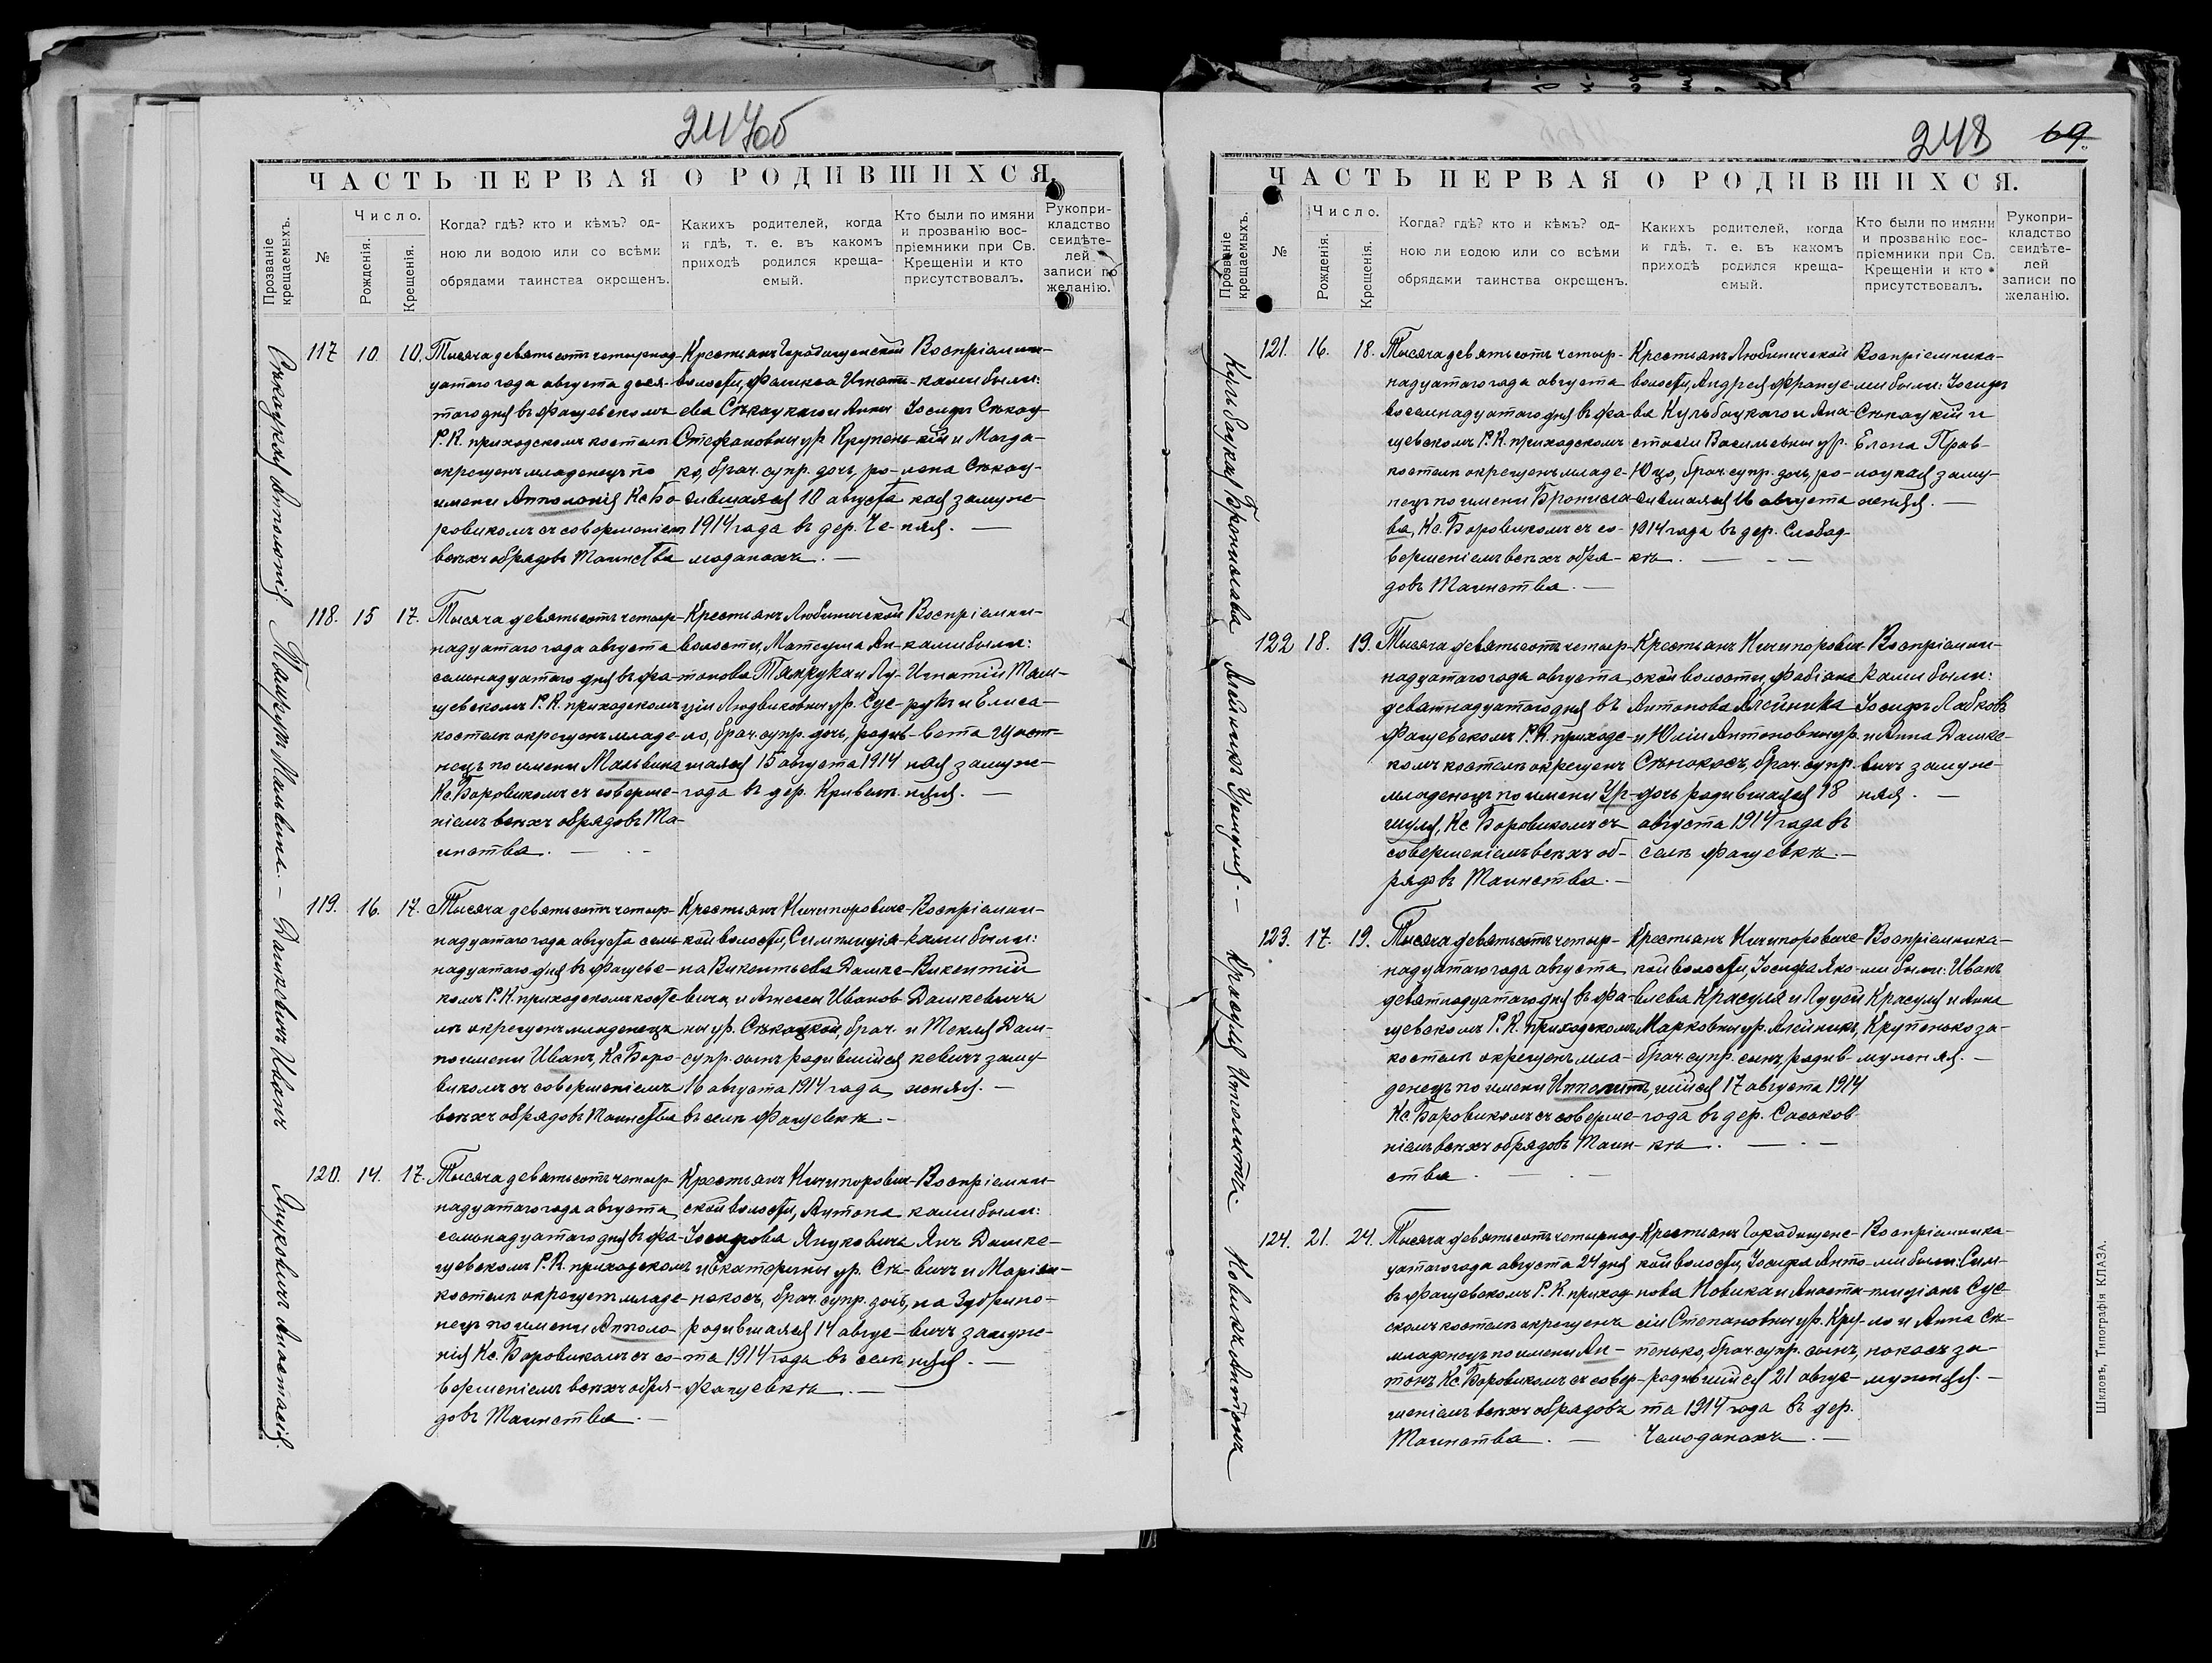 247об
ЧАСТЬ ПЕРВАЯ О РОДИВШИХСЯ.
Прозваніе крещаемыхъ.
№
Число.
Рожденія.
Крещенія.
Когда? гдѣ? кто и кѣмъ? од-
ною ли водою или со всѣми
обрядами таинства окрещенъ.
Какихъ родителей, когда
и гдѣ, т. е. въ какомъ
приходѣ родился креща-
емый.
Кто были по имяни
и прозванію вос-
пріемники при Св.
Крещеніи и кто
присутствовалъ.
Рукопри-
кладство
свидѣте-
лей
записи по
желанію.
Сѣкацкая Апполонія.
117 10. 10.
Тысяча девятьсотъ четырнад-
цатаго года августа деся-
таго дня въ Фащевскомъ
Р. К. приходскомъ костелѣ
окрещенъ младенецъ по
имени Апполонія Кс. Бо-
ровикомъ съ совершеніем
всѣхъ обрядовъ Таинства
Крестьянъ Городищенской
волости, Феликса Игнать-
ева Сѣкацкаго и Анны
Стефановны ур. Крупень-
ко, брач. супр. дочь, ро-
дившаяся 10 августа
1914 года въ дер. Че-
моданахъ. —
Воспріемни-
ками были:
Іосифъ Сѣкац-
кій и Магда-
лена Сѣкац-
кая замуж-
няя. —
Тамкунъ Мальвина. —
118. 15 17.
Тысяча девятьсотъ четыр-
надцатаго года августа
семьнадцатаго дня въ Фа-
щевскомъ Р. К. приходскомъ
костелѣ окрещенъ младе-
нецъ по имени Мальвина
Кс. Боровикомъ съ соверше-
ніемъ всѣхъ обрядовъ Та-
инства. —
Крестьянъ Любиничской
волости, Матеуша Ан-
тонова и Лу-
ціи Людвиковны ур. Сус-
ло, брач. супр. дочь, родив-
шаяся 15 августа 1914
года въ дер. Кривель
Воспріемни-
ками были:
Игнатій
и Елиса-
вета
няя замуж-
няя. —
Дашкевичъ Иванъ
119. 16. 17.
Тысяча девятьсотъ четыр-
надцатаго года августа семь-
надцатаго дня въ Фащевс-
комъ Р. К. приходскомъ косте-
лѣ окрещенъ младенецъ
по имени Иванъ, Кс. Боро-
викомъ съ совершеніемъ
всѣхъ обрядовъ Таинства
Крестьянъ Ничипоровичс-
кой волости, Симплиція-
на Викентьева Дашке-
вича и Агнессы Иванов-
ны ур. Сѣкацкой, брач.
супр. сынъ родившійся
16 августа 1914 года
въ селѣ Фащевкѣ —
Воспріемни-
ками были:
Викентій
Дашкевичъ
и Текля Даш-
кевичъ заму-
жняя. —
Януковичъ Анастасія.
120. 14. 17.
Тысяча девятьсотъ четыр-
надцатаго года августа
семьнадцатаго дня въ Фа-
щевскомъ Р. К. приходскомъ
костелѣ окрещенъ младе-
нецъ по имени Апполо-
нія Кс. Боровикомъ съ со-
вершеніемъ всѣхъ обря-
довъ Таинства. —
Крестьянъ Ничипорович-
ской волости, Антона
Іосифова Януковича
и Екатерины ур. Сѣ-
нокосъ, брач. супр. дочь,
родившаяся 14 авгус-
та 1914 года въ селѣ
Фащевкѣ. —
Воспріемни-
ками были:
Янъ Дашке-
вичъ и Маріан-
на Зубрино-
вичъ замуж-
няя. —
248 69.
ЧАСТЬ ПЕРВАЯ О РОДИВШИХСЯ.
Прозваніе крещаемыхъ.
№
Число.
Рожденія.
Крещенія.
Когда? гдѣ? кто и кѣмъ? од-
ною ли водою или со всѣми
обрядами таинства окрещенъ.
Какихъ родителей, когда
и гдѣ, т. е. въ какомъ
приходѣ родился креща-
емый.
Кто были по имяни
и прозванію вос-
пріемники при Св.
Крещеніи и кто
присутствовалъ.
Рукопри-
кладство
свидѣте-
лей
записи по
желанію.
Кульбацкая Бронислава
121. 16. 18.
Тысяча девятьсотъ четыр-
надцатаго года августа
восемнадцатаго дня въ Фа-
щевскомъ Р. К. приходскомъ
костелѣ окрещенъ младе-
нецъ по имени Бронисла-
ва, Кс. Боровикомъ съ со-
вершеніемъ всѣхъ обря-
довъ Таинства. —
Крестьянъ Любиничской
волости, Андрея Францо-
ва Кульбацкаго и Ана-
стасіи Васильевны ур.
Юцо, брач. супр. дочь, ро-
дившаяся 16 августа
1914 года въ дер. Слобод-
кѣ. —
Воспріемника-
ми были: Іосифъ
Сѣкацкій и
Елена Прав-
лоцкая заму-
жняя. —
Алейникъ Уршуля. —
122 18. 19.
Тысяча девятьсотъ четыр-
надцатаго года августа
девятнадцатаго дня въ
Фащевскомъ Р. К. приходс-
комъ костелѣ окрещенъ
младенецъ по имени Ур-
шуля, Кс. Боровикомъ съ
совершеніемъ всѣхъ об-
рядовъ Таинства. —
Крестьянъ Ничипорович-
ской волости, Фабіана
Антонова Алейника
и Юліи Антоновны ур.
Сѣнокосъ, брач. супр.
дочь родившаяся 18
августа 1914 года въ
селѣ Фащевкѣ. —
Воспріемни-
ками были:
Іосифъ Лабковъ
и Анна Дашке-
вичъ замуж-
няя. —
Красуля Ипполитъ.
123. 17. 19.
Тысяча девятьсотъ четыр-
надцатаго года августа
девятнадцатаго дня въ Фа-
щевскомъ Р. К. приходскомъ
костелѣ окрещенъ мла-
денецъ по имени Ипполитъ,
Кс. Боровикомъ съ соверше-
ніемъ всѣхъ обрядовъ Таин-
ства. —
Крестьянъ Ничипоровичс-
кой волости, Іосифа Яко-
влева Красуля и Луціи
Марковны ур. Алейникъ,
брач. супр. сынъ, родив-
шійся 17 августа 1914
года въ дер. Сасаков-
кѣ. —
Воспріемника-
ми были: Иванъ
Красуля и Анна
Крупенько за-
мужняя. —
Новикъ Антонъ
124. 21. 24.
Тысяча девятьсотъ четырнад-
цатаго года августа 24 дня
въ Фащевскомъ Р. К. приход-
скомъ костелѣ окрещенъ
младенецъ по имени Ан-
тонъ Кс. Боровикомъ съ совер-
шеніемъ всѣхъ обрядовъ
Таинства. —
Крестьянъ Городищенс-
кой волости, Іосифа Анто-
нова Новика и Анаста-
сіи Степановны ур. Кру-
пенько, брач. супр. сынъ,
родившійся 21 авгус-
та 1914 года въ дер.
Чемоданахъ. —
Воспріемника-
ми были: Сим-
плиціанъ Сус-
ло и Анна Сѣ-
нокосъ за-
мужняя. —
Шкловъ, Типографія КЛАЗА.